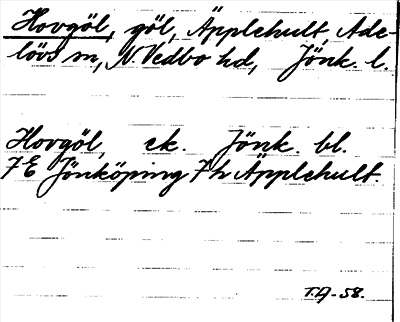 Hovgöl, göl, Äpplehult, Ade-
lövs sn, N. Vedbo hd, Jönk. l.
Hovgöl, ek. Jönk. bl.
7E Jönköping 7h Äpplehult.
T.A -58.